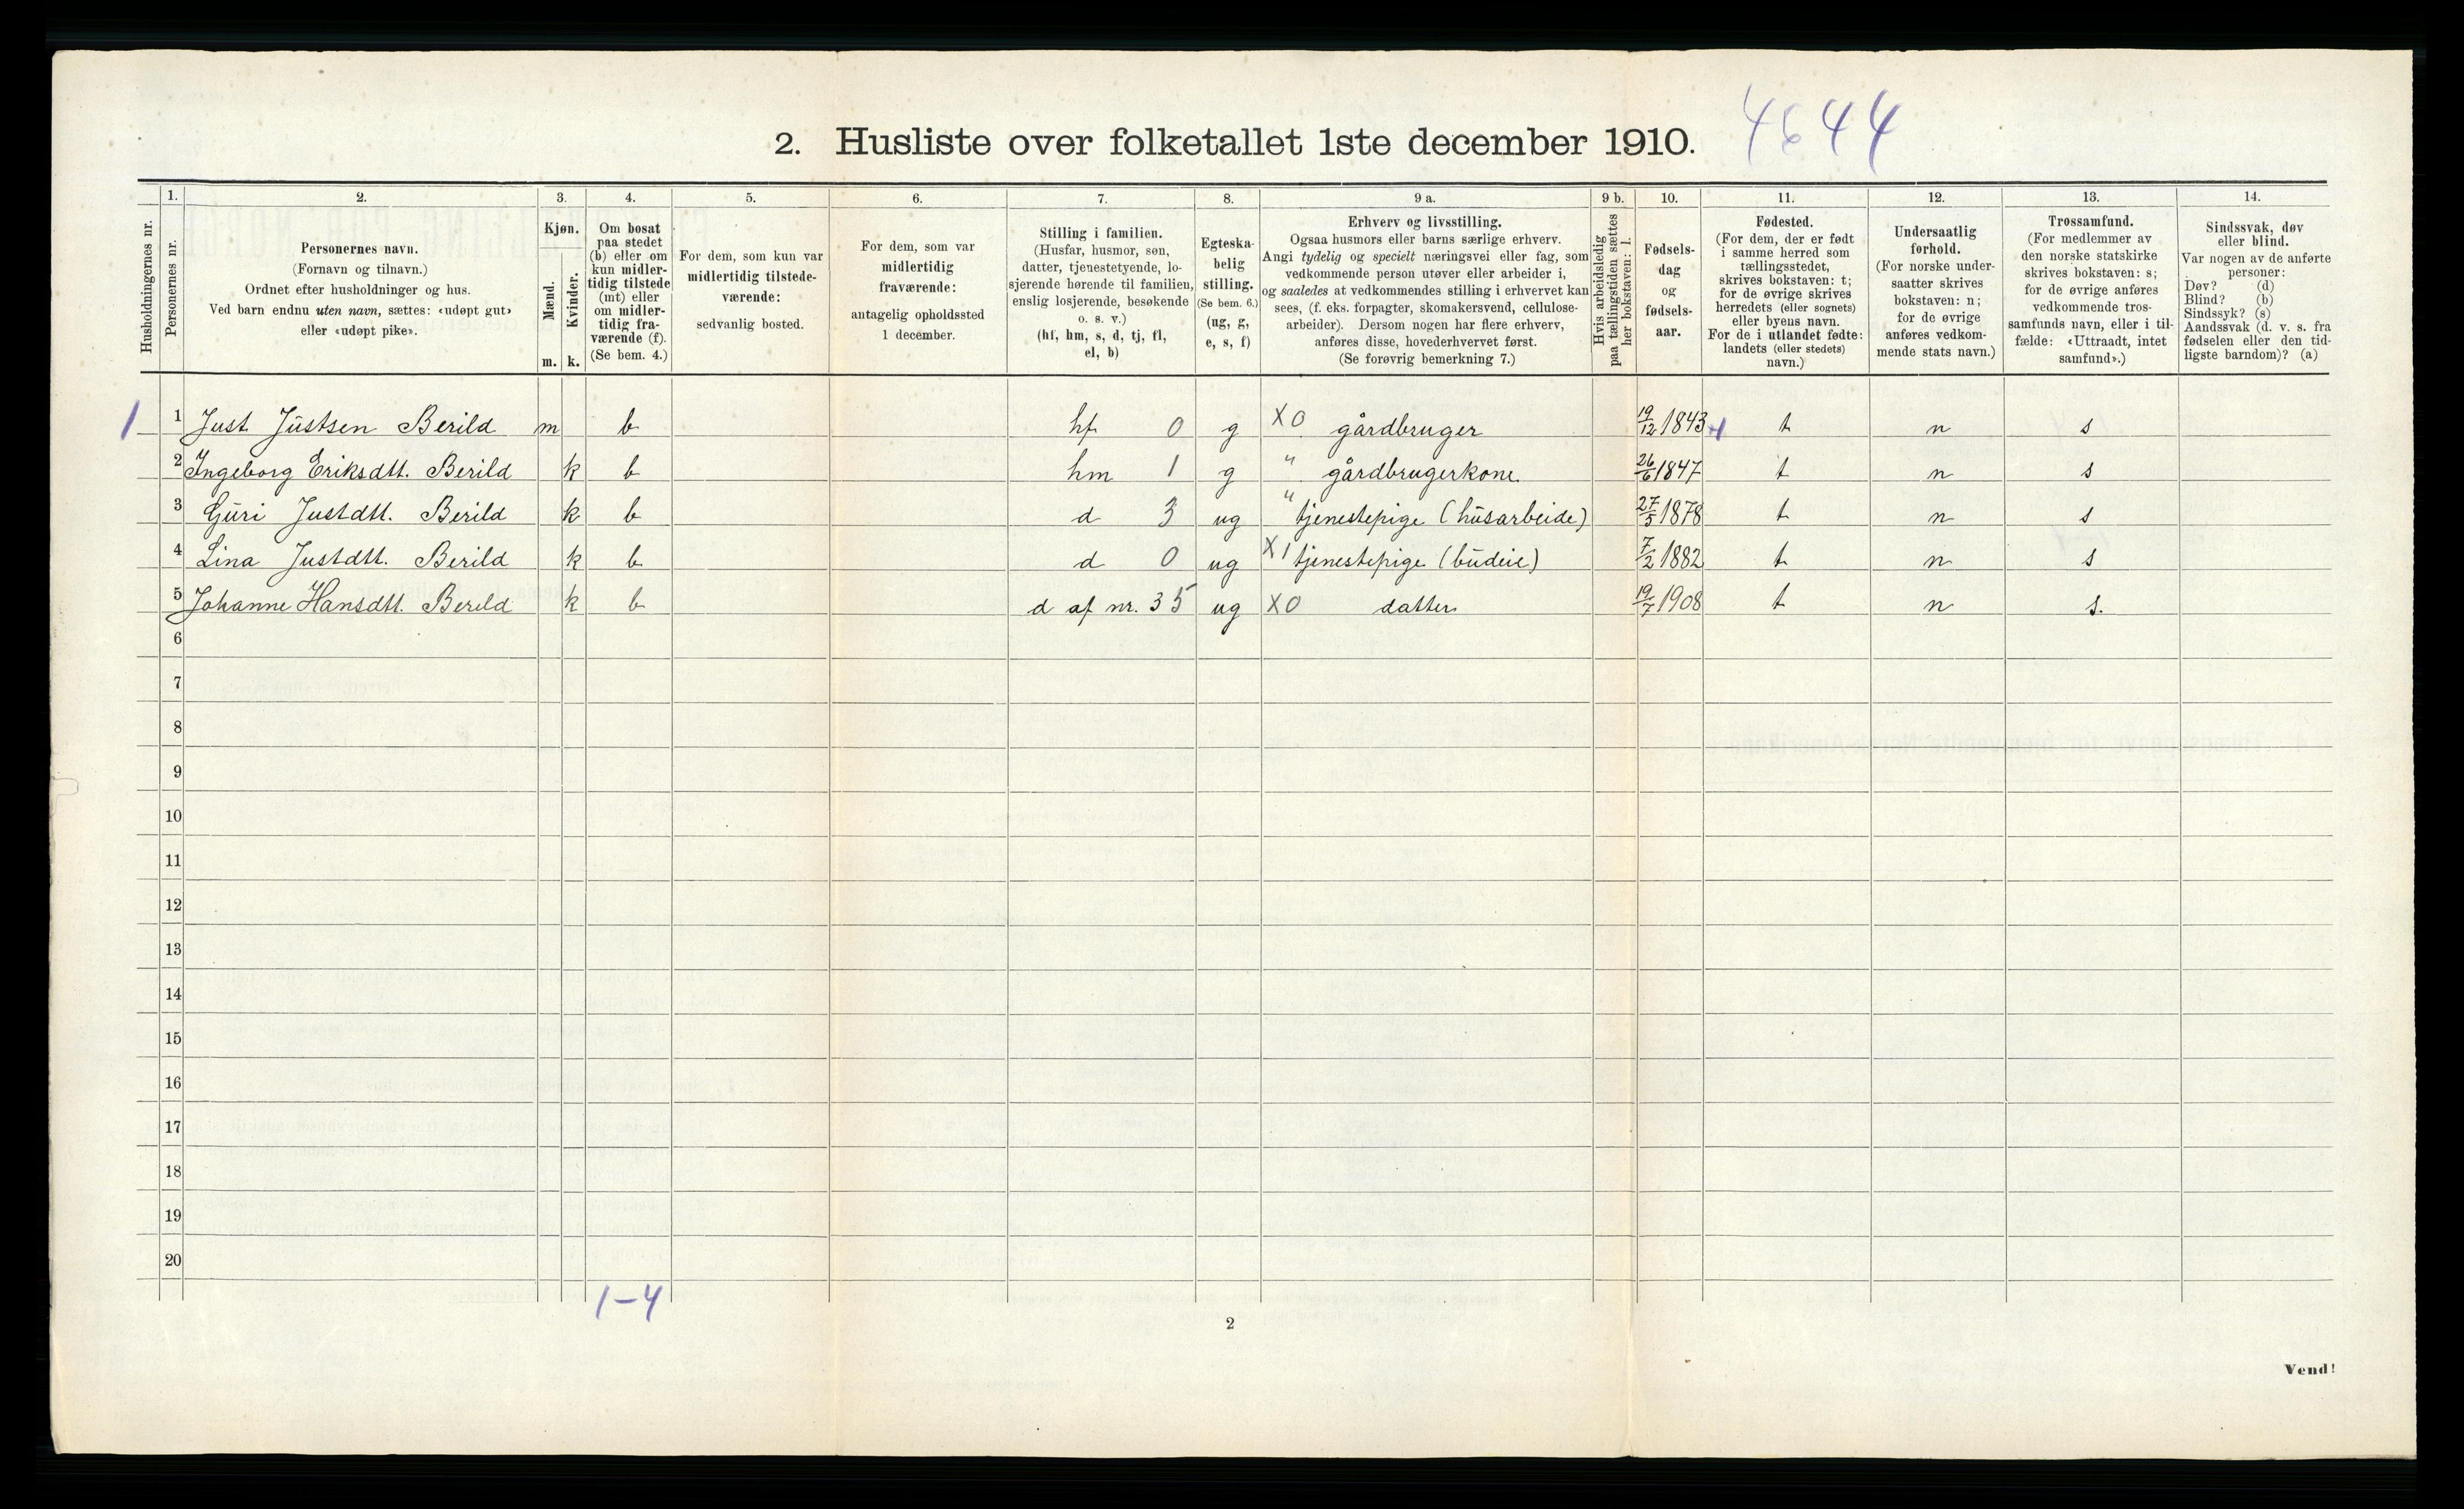 2. Husliste over folketallet 1ste december 1910. 4644
Husholdningernes nr.
1.
Personernes nr.
2.
Personernes navn.
(Fornavn og tilnavn.)
Ordnet efter husholdninger og hus.
Ved barn endnu uten navn, sættes: «udøpt gut»
eller «udøpt pike».
3.
Kjøn.
Mænd.
Kvinder.
m. k.
4.
Om bosat
paa stedet
(b) eller om
kun midler-
tidig tilstede
(mt) eller
om midler-
tidig fra-
værende (f).
(Se bem. 4.)
5.
For dem, som kun var
midlertidig tilstede-
værende:
sedvanlig bosted.
6.
For dem, som var
midlertidig
fraværende:
antagelig opholdssted
1 december.
7.
Stilling i familien.
(Husfar, husmor, søn,
datter, tjenestetyende, lo-
sjerende hørende til familien,
enslig losjerende, besøkende
o. s. v.)
(hf, hm, s, d, tj, fl,
el, b)
8.
Egteska-
belig
stilling.
(Se bem. 6.)
(ug, g,
e, s, f)
9 a.
Erhverv og livsstilling.
Ogsaa husmors eller barns særlige erhverv.
Angi tydelig og specielt næringsvei eller fag, som
vedkommende person utøver eller arbeider i,
og saaledes at vedkommendes stilling i erhvervet kan
sees, (f. eks. forpagter, skomakersvend, cellulose-
arbeider). Dersom nogen har flere erhverv,
anføres disse, hovederhvervet først.
(Se forøvrig bemerkning 7.)
9 b.
Hvis arbeidsledig
paa tællingstiden sættes
her bokstaven: l.
10.
Fødsels-
dag
og
fødsels-
aar.
11.
Fødested.
(For dem, der er født
i samme herred som
tællingsstedet,
skrives bokstaven: t;
for de øvrige skrives
herredets (eller sognets)
eller byens navn.
For de i utlandet fødte:
landets (eller stedets)
navn.)
12.
Undersaatlig
forhold.
(For norske under-
saatter skrives
bokstaven: n;
for de øvrige
anføres vedkom-
mende stats navn.)
13.
Trossamfund.
(For medlemmer av
den norske statskirke
skrives bokstaven: s;
for de øvrige anføres
vedkommende tros-
samfunds navn, eller i til-
fælde: «Uttraadt, intet
samfund».)
14.
Sindssvak, døv
eller blind.
Var nogen av de anførte
personer:
Døv? (d)
Blind? (b)
Sindssyk? (s)
Aandssvak (d. v. s. fra
fødselen eller den tid-
ligste barndom)? (a)
1 1 Just Justsen Berild m b hf 0 g X0 gårdbruger 19/12 1843 1 t n s
2 Ingeborg Eriksdtt. Berild k b hm 1 g " gårdbrugerkone 26/6 1847 t n s
3 Guri Justdtt. Berild k b d 3 ug " tjenestepige (husarbeide) 27/5 1878 t n s
4 Lina Justdtt. Berild k b d 0 ug X1 tjenestepige (budeie) 7/2 1882 t n s
5 Johanne Hansdtt. Berild k b d af nr. 3 5 ug X0 datter 19/7 1908 t n s.
6
7
8
9
10
11
12
13
14
15
16
17
18
19
20
1-4
2
Vend!